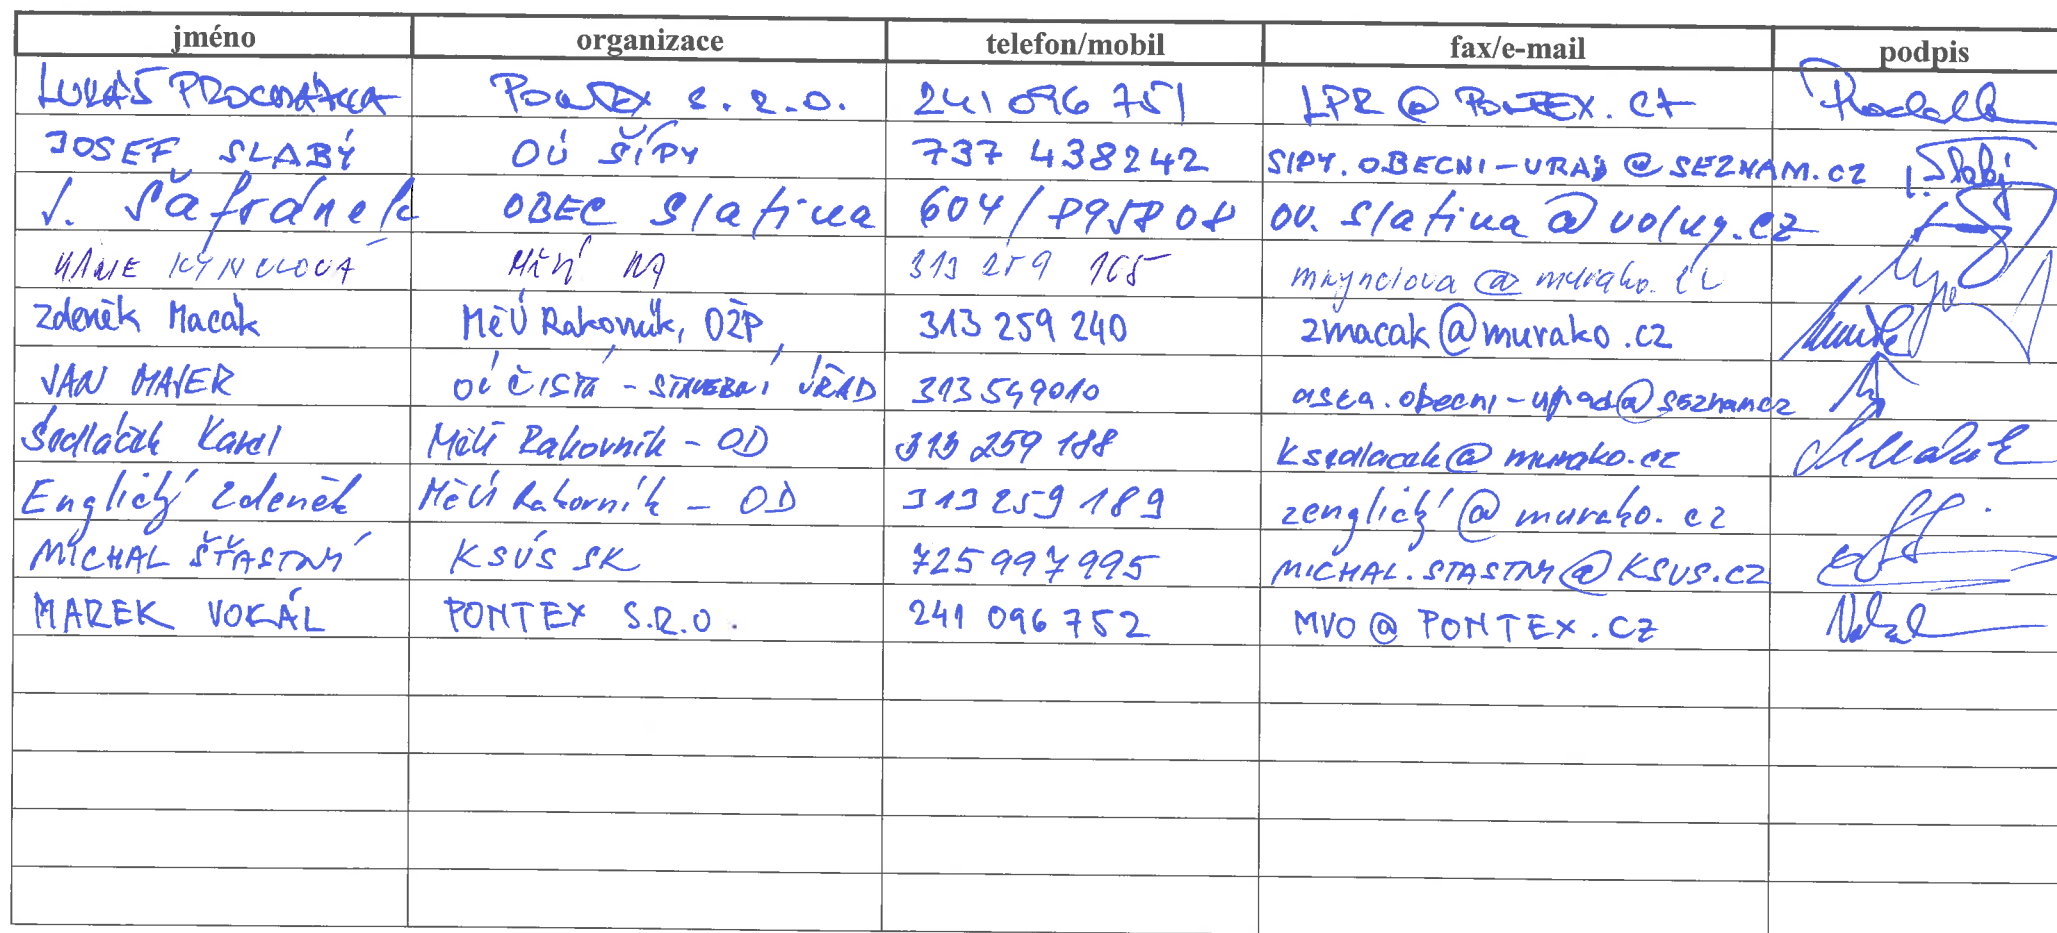 jméno organizace telefon/mobil fax/e-mail podpis
LUKÁŠ PROCHÁZKA PONTEX s.r.o. 241 096 751 LPR@PONTEX.CZ
JOSEF SLABÝ OÚ ŠÍPY 737 438242 SIPY.OBECNI-URAD@SEZNAM.CZ J. Slabý
J. Šafránek OBEC Slatina 604/895808 OU.Slatina@volny.cz
313 259 165 @murako.cz
Zdeněk Macák MěÚ Rakovník, OŽP 313 259 240 zmacak@murako.cz
JAN MAJER OÚ ČISTÁ - STAVEBNÍ ÚŘAD 313549010 obecni-urad@seznam.cz
Sedláček Karel MěÚ Rakovník - OD 313 259 188 ksedlacek@murako.cz
Englický Zdeněk MěÚ Rakovník - OD 313 259 189 zenglický@murako.cz
MICHAL ŠŤASTNÝ KSÚS SK 725997995 MICHAL.STASTNY@KSUS.CZ
MAREK VOKÁL PONTEX S.R.O. 241 096 752 MVO@PONTEX.CZ